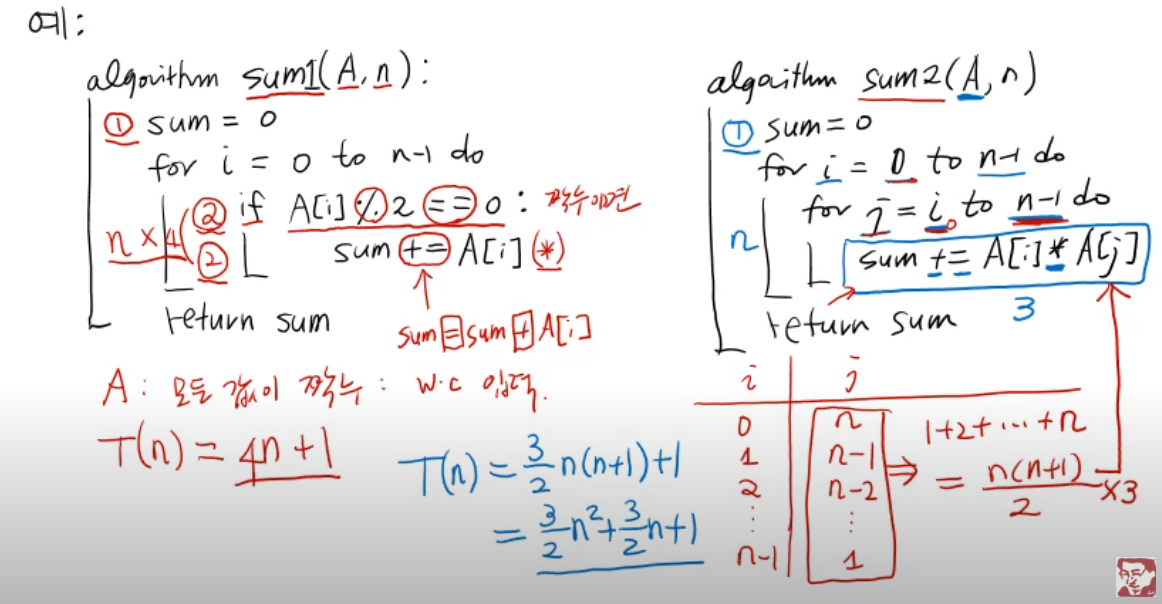 예:
algorithm sum1(A, n):
① sum = 0
for i = 0 to n-1 do
② if A[i] % 2 == 0: 짝수이면
n × 4
② sum += A[i] (*)
return sum
sum = sum + A[i]
A: 모든 값이 짝수: W.C 입력.
T(n) = 4n+1
algorithm sum2(A, n)
① sum = 0
for i = 0 to n-1 do
for j = i to n-1 do
n
sum += A[i] * A[j]
3
return sum
i j
0 n
1 n-1
2 n-2
⋮ ⋮
n-1 1
⇒ 1+2+⋯+n
= n(n+1)/2 ×3
T(n) = 3/2 n(n+1)+1
= 3/2 n² + 3/2 n + 1